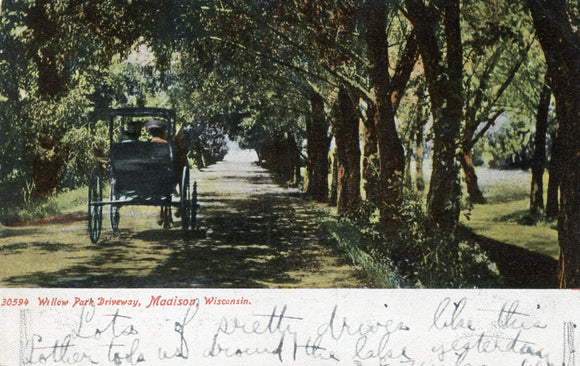 30594 Willow Park Driveway, Madison, Wisconsin.
Lots of pretty drives like this
Lother tods us around the lake yesterday